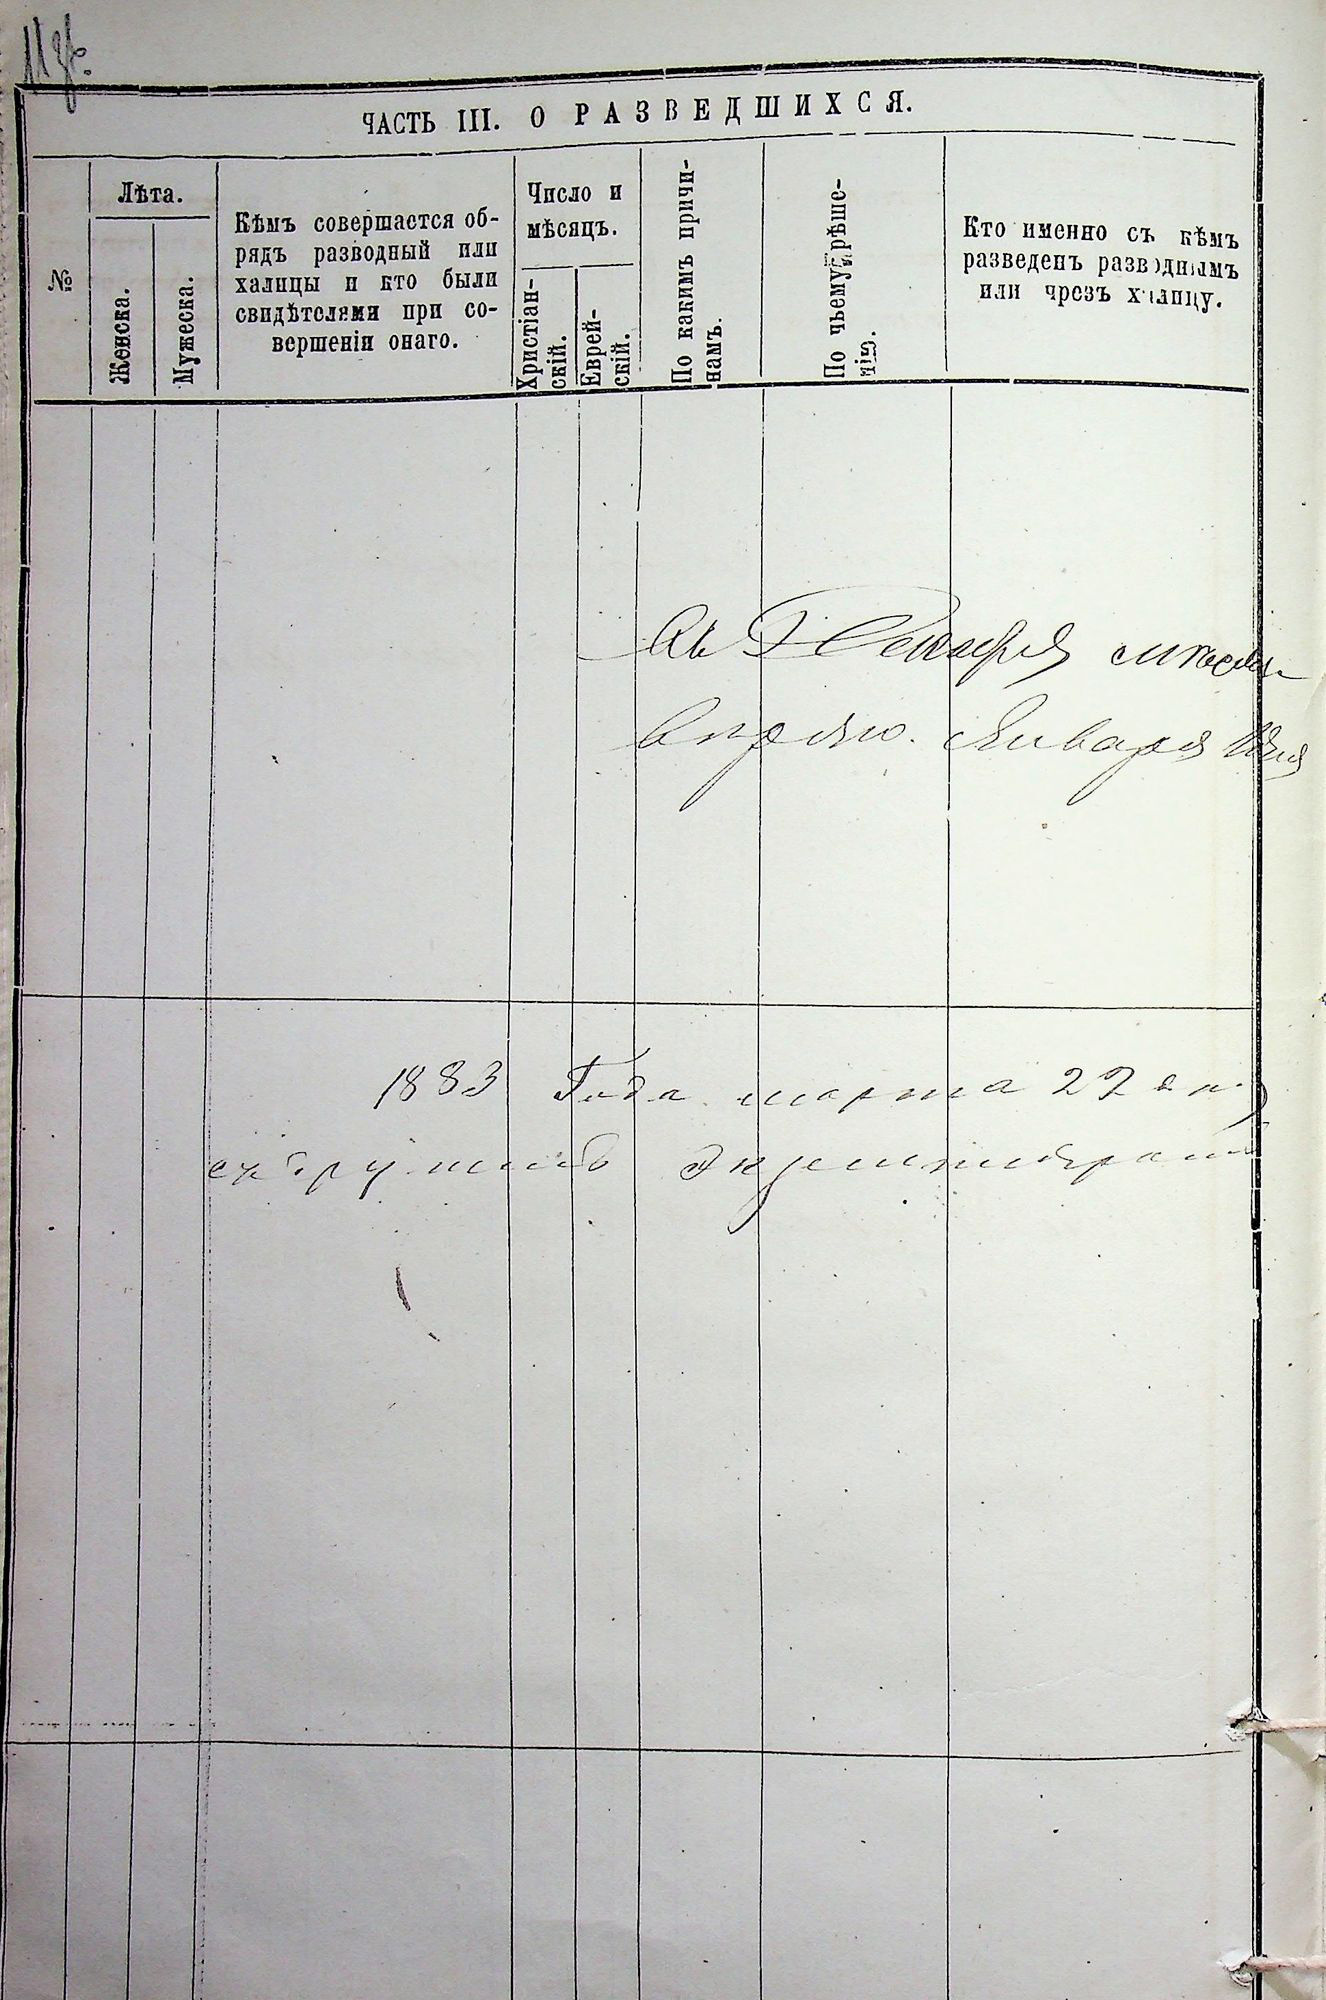 ЧАСТЬ III. О РАЗВЕДШИХСЯ.
№
Лѣта.
Женска.
Мужеска.
Кѣмъ совершается об-
рядъ разводный или
халицы и кто были
свидѣтелями при со-
вершеніи онаго.
Число и
мѣсяцъ.
Христіан-
скій.
Еврей-
скій.
По какимъ причи-
намъ.
По чьему рѣше-
нію.
Кто именно съ кѣмъ
разведенъ разводнымъ
или чрезъ халицу.
Января
1883 Года марта 22 дня